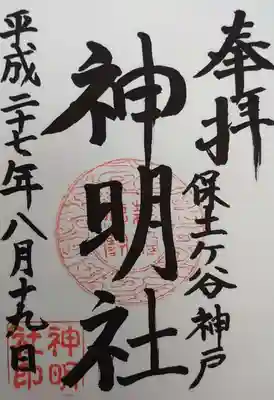 奉拝
保土ケ谷神戸
神明社
平成二十七年八月十九日
神明
社印